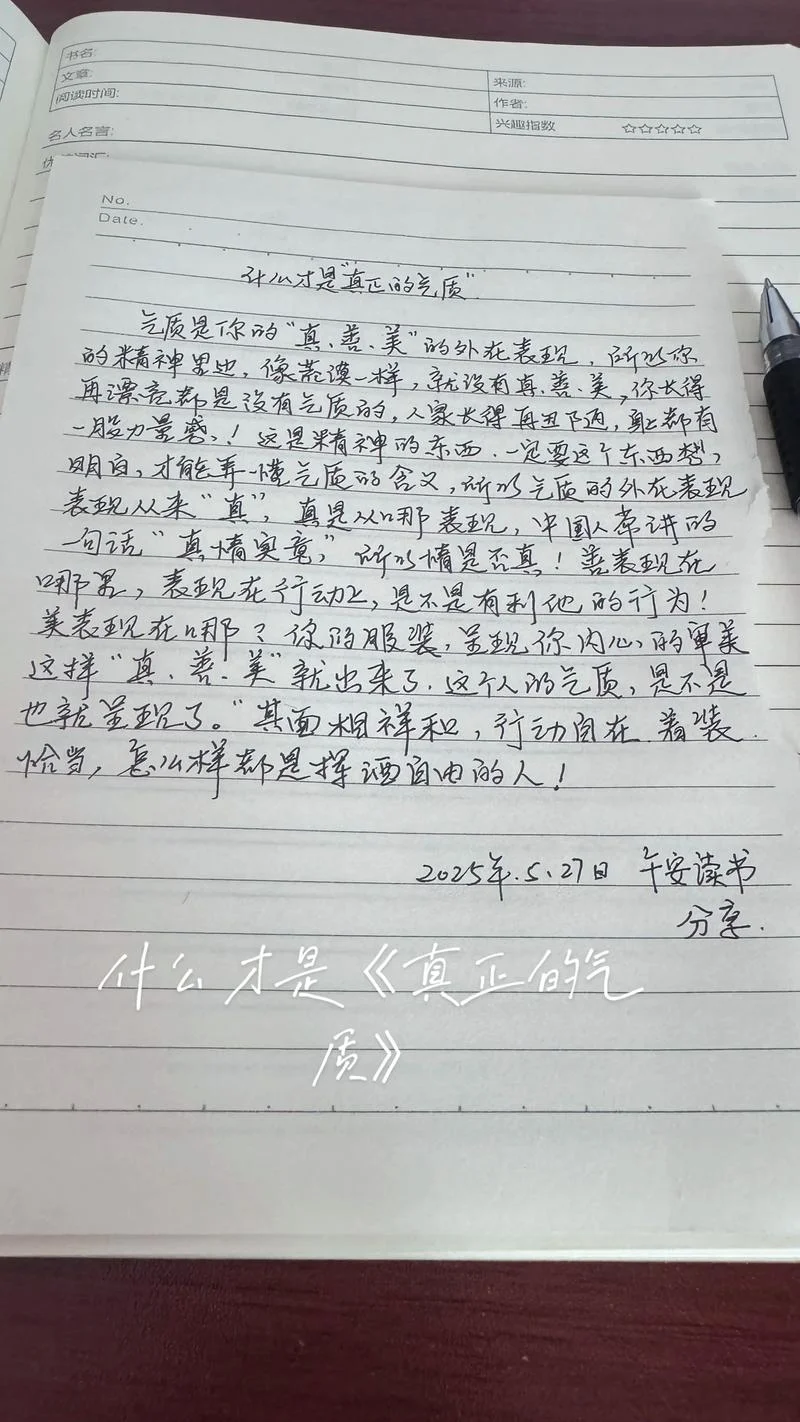 书名:
文章:
阅读时间:
来源:
作者:
兴趣指数 ☆☆☆☆☆
名人名言:
No.
Date.
什么才是"真正的气质"
气质是你的"真、善、美"的外在表现，所以你
的精神里边，像荒漠一样，就没有真、善、美，你长得
再漂亮都是没有气质的，人家长得再丑下通，身上都有
一股力量感！这是精神的东西．一定要这个东西想，
明白，才能弄懂气质的含义，所以气质的外在表现
表现从来"真"，真是从哪表现，中国人常讲的
一句话"真情实意，"所以情是否真！善表现在
哪里，表现在行动上，是不是有利他的行为！
美表现在哪？你的服装，呈现你内心的审美
这样"真、善、美"就出来了．这个人的气质，是不是
也就呈现了。"其面相祥和，行动自在 着装．
恰当，怎么样都是挥洒自由的人！
2025年.5.27日 午安读书
分享．
什么才是《真正的气
质》